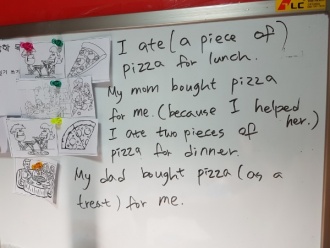 LC
I ate (a piece of)
pizza for lunch.
My mom bought pizza
for me. (because I helped
her.)
I ate two pieces of
pizza for dinner.
My dad bought pizza (as a
treat) for me.